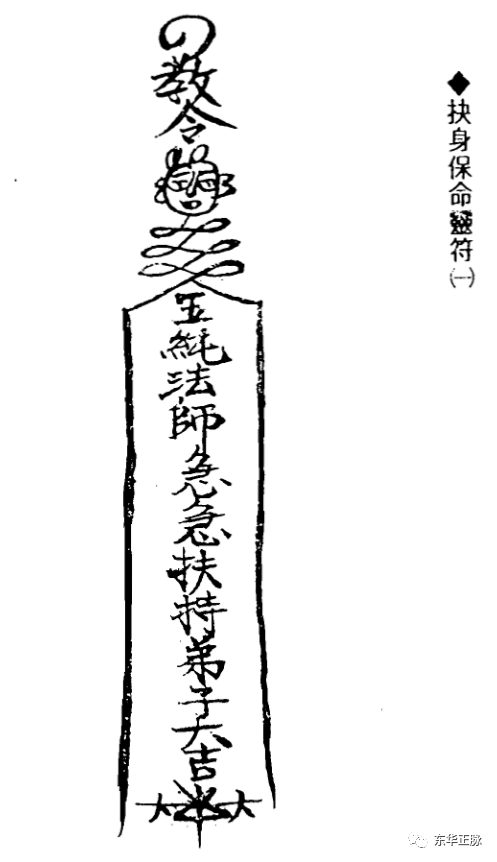 ◆抉身保命靈符㈠
教令
玉純法師急急扶持弟子大吉
大 大
东华正脉